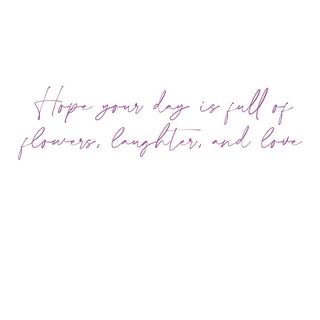 Hope your day is full of
flowers, laughter, and love